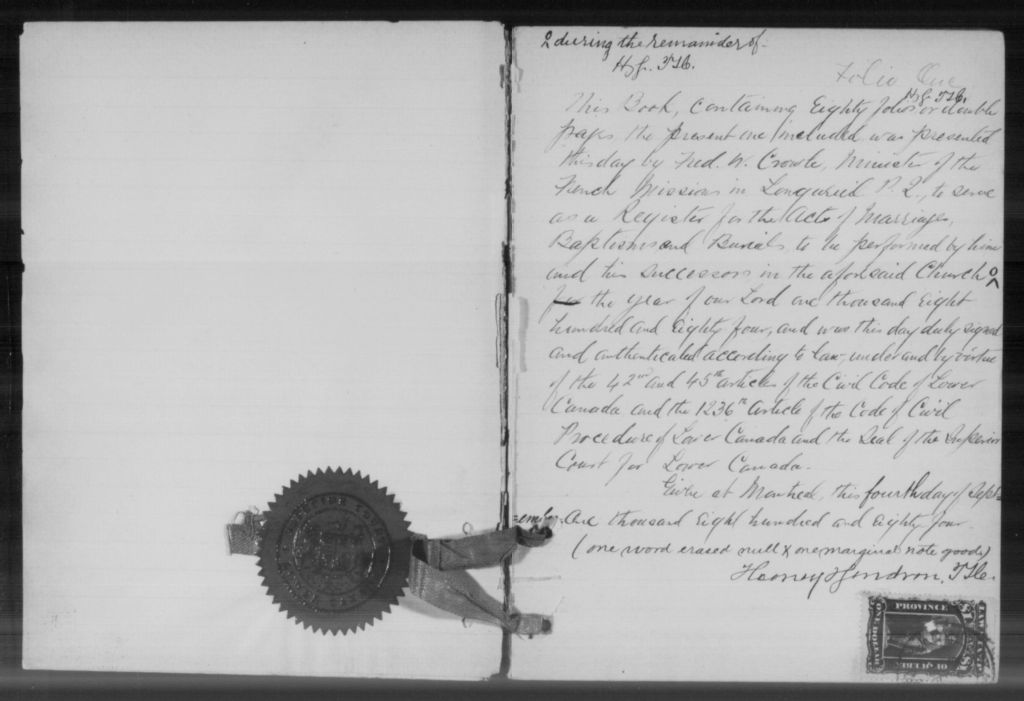 2 during the remainder of
Folio One
This Book, containing Eighty folios or double
pages the present one included was presented
this day by Fred. W. Crowle, Minister of the
French Mission in Longueuil P. Q., to serve
as a Register for the Acts of Marriages,
Baptisms and Burials, to be performed by him
and his successors in the aforesaid Church
for the year of our Lord one thousand Eight
hundred and Eighty four, and was this day duly signed
and authenticated according to Law, under and by virtue
of the 42nd and 45th articles of the Civil Code of Lower
Canada and the 1236th Article of the Code of Civil
Procedure of Lower Canada and the Seal of the Superior
Court for Lower Canada.
Given at Montreal, this fourth day of Sept
ember, One thousand Eight hundred and Eighty four
(one word erased null & one marginal note good)
PROVINCE
OF QUEBEC
LAW STAMP
ONE DOLLAR
$1